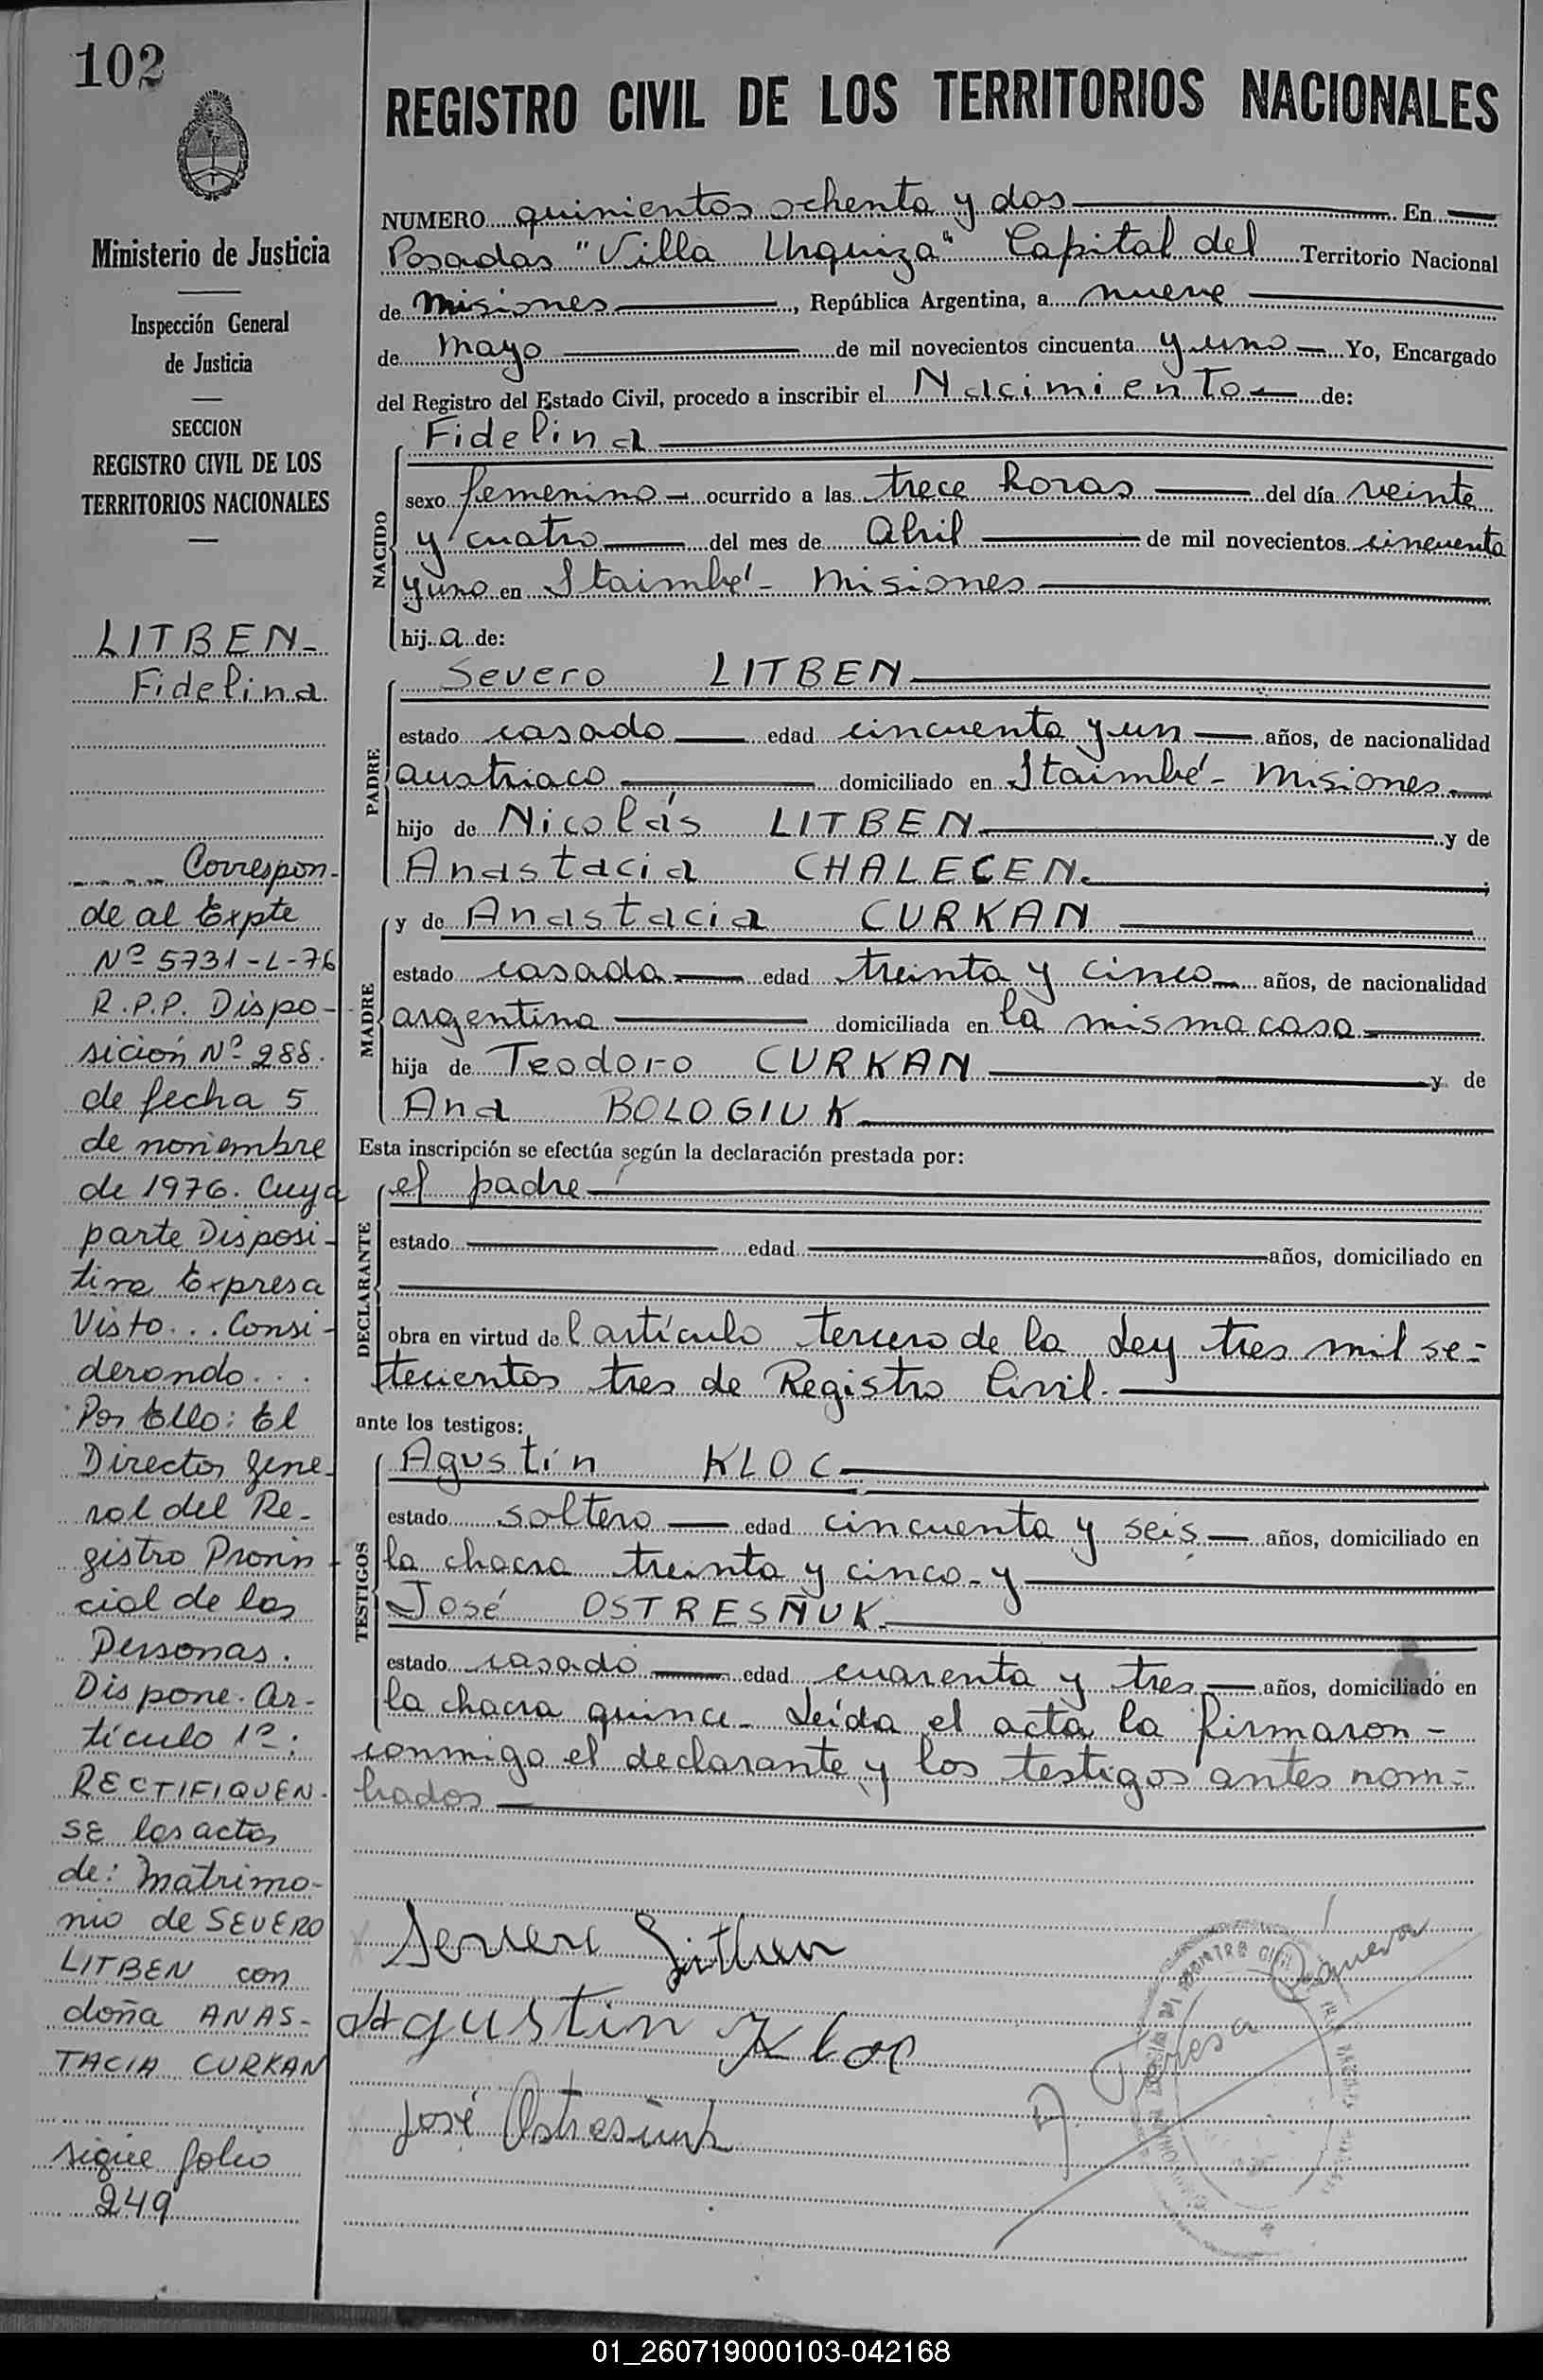 102
Ministerio de Justicia
Inspección General
de Justicia
SECCION
REGISTRO CIVIL DE LOS
TERRITORIOS NACIONALES
LITBEN-
Fidelina
Correspon-
de al Expte
Nº 5731-L-76
R.P.P. Dispo-
sición Nº 288.
de fecha 5
de noviembre
de 1976. Cuya
parte Disposi-
tiva Expresa
Visto... Consi-
derando...
Por Ello: El
Director Gene-
ral del Re-
gistro Provin-
cial de las
Personas.
Dispone. Ar-
tículo 1º:
RECTIFIQUEN-
SE las actas
de: Matrimo-
nio de SEVERO
LITBEN con
doña ANAS-
TACIA CURKAN
sigue folio
249
REGISTRO CIVIL DE LOS TERRITORIOS NACIONALES
NUMERO quinientos ochenta y dos En
Posadas "Villa Urquiza" Capital del Territorio Nacional
de Misiones, República Argentina, a nueve
de Mayo de mil novecientos cincuenta y uno Yo, Encargado
del Registro del Estado Civil, procedo a inscribir el Nacimiento de:
NACIDO
Fidelina
sexo femenino ocurrido a las trece horas del día veinte
y cuatro del mes de Abril de mil novecientos cincuenta
y uno en Itaimbé - Misiones
hij a de:
PADRE
Severo LITBEN
estado casado edad cincuenta y un años, de nacionalidad
austriaco domiciliado en Itaimbé - Misiones
hijo de Nicolás LITBEN y de
Anastacia CHALECEN.
MADRE
y de Anastacia CURKAN
estado casada edad treinta y cinco años, de nacionalidad
argentina domiciliada en la misma casa
hija de Teodoro CURKAN y de
Ana BOLOGIUK
Esta inscripción se efectúa según la declaración prestada por:
DECLARANTE
el padre
estado edad años, domiciliado en
obra en virtud de l artículo tercero de la Ley tres mil se-
tecientos tres de Registro Civil.
ante los testigos:
TESTIGOS
Agustín KLOC
estado soltero edad cincuenta y seis años, domiciliado en
la chacra treinta y cinco - y
José OSTRESÑUK
estado casado edad cuarenta y tres años, domiciliado en
la chacra quince - Leída el acta la firmaron -
conmigo el declarante y los testigos antes nom-
brados
Agustin Kloc
José
01_260719000103-042168